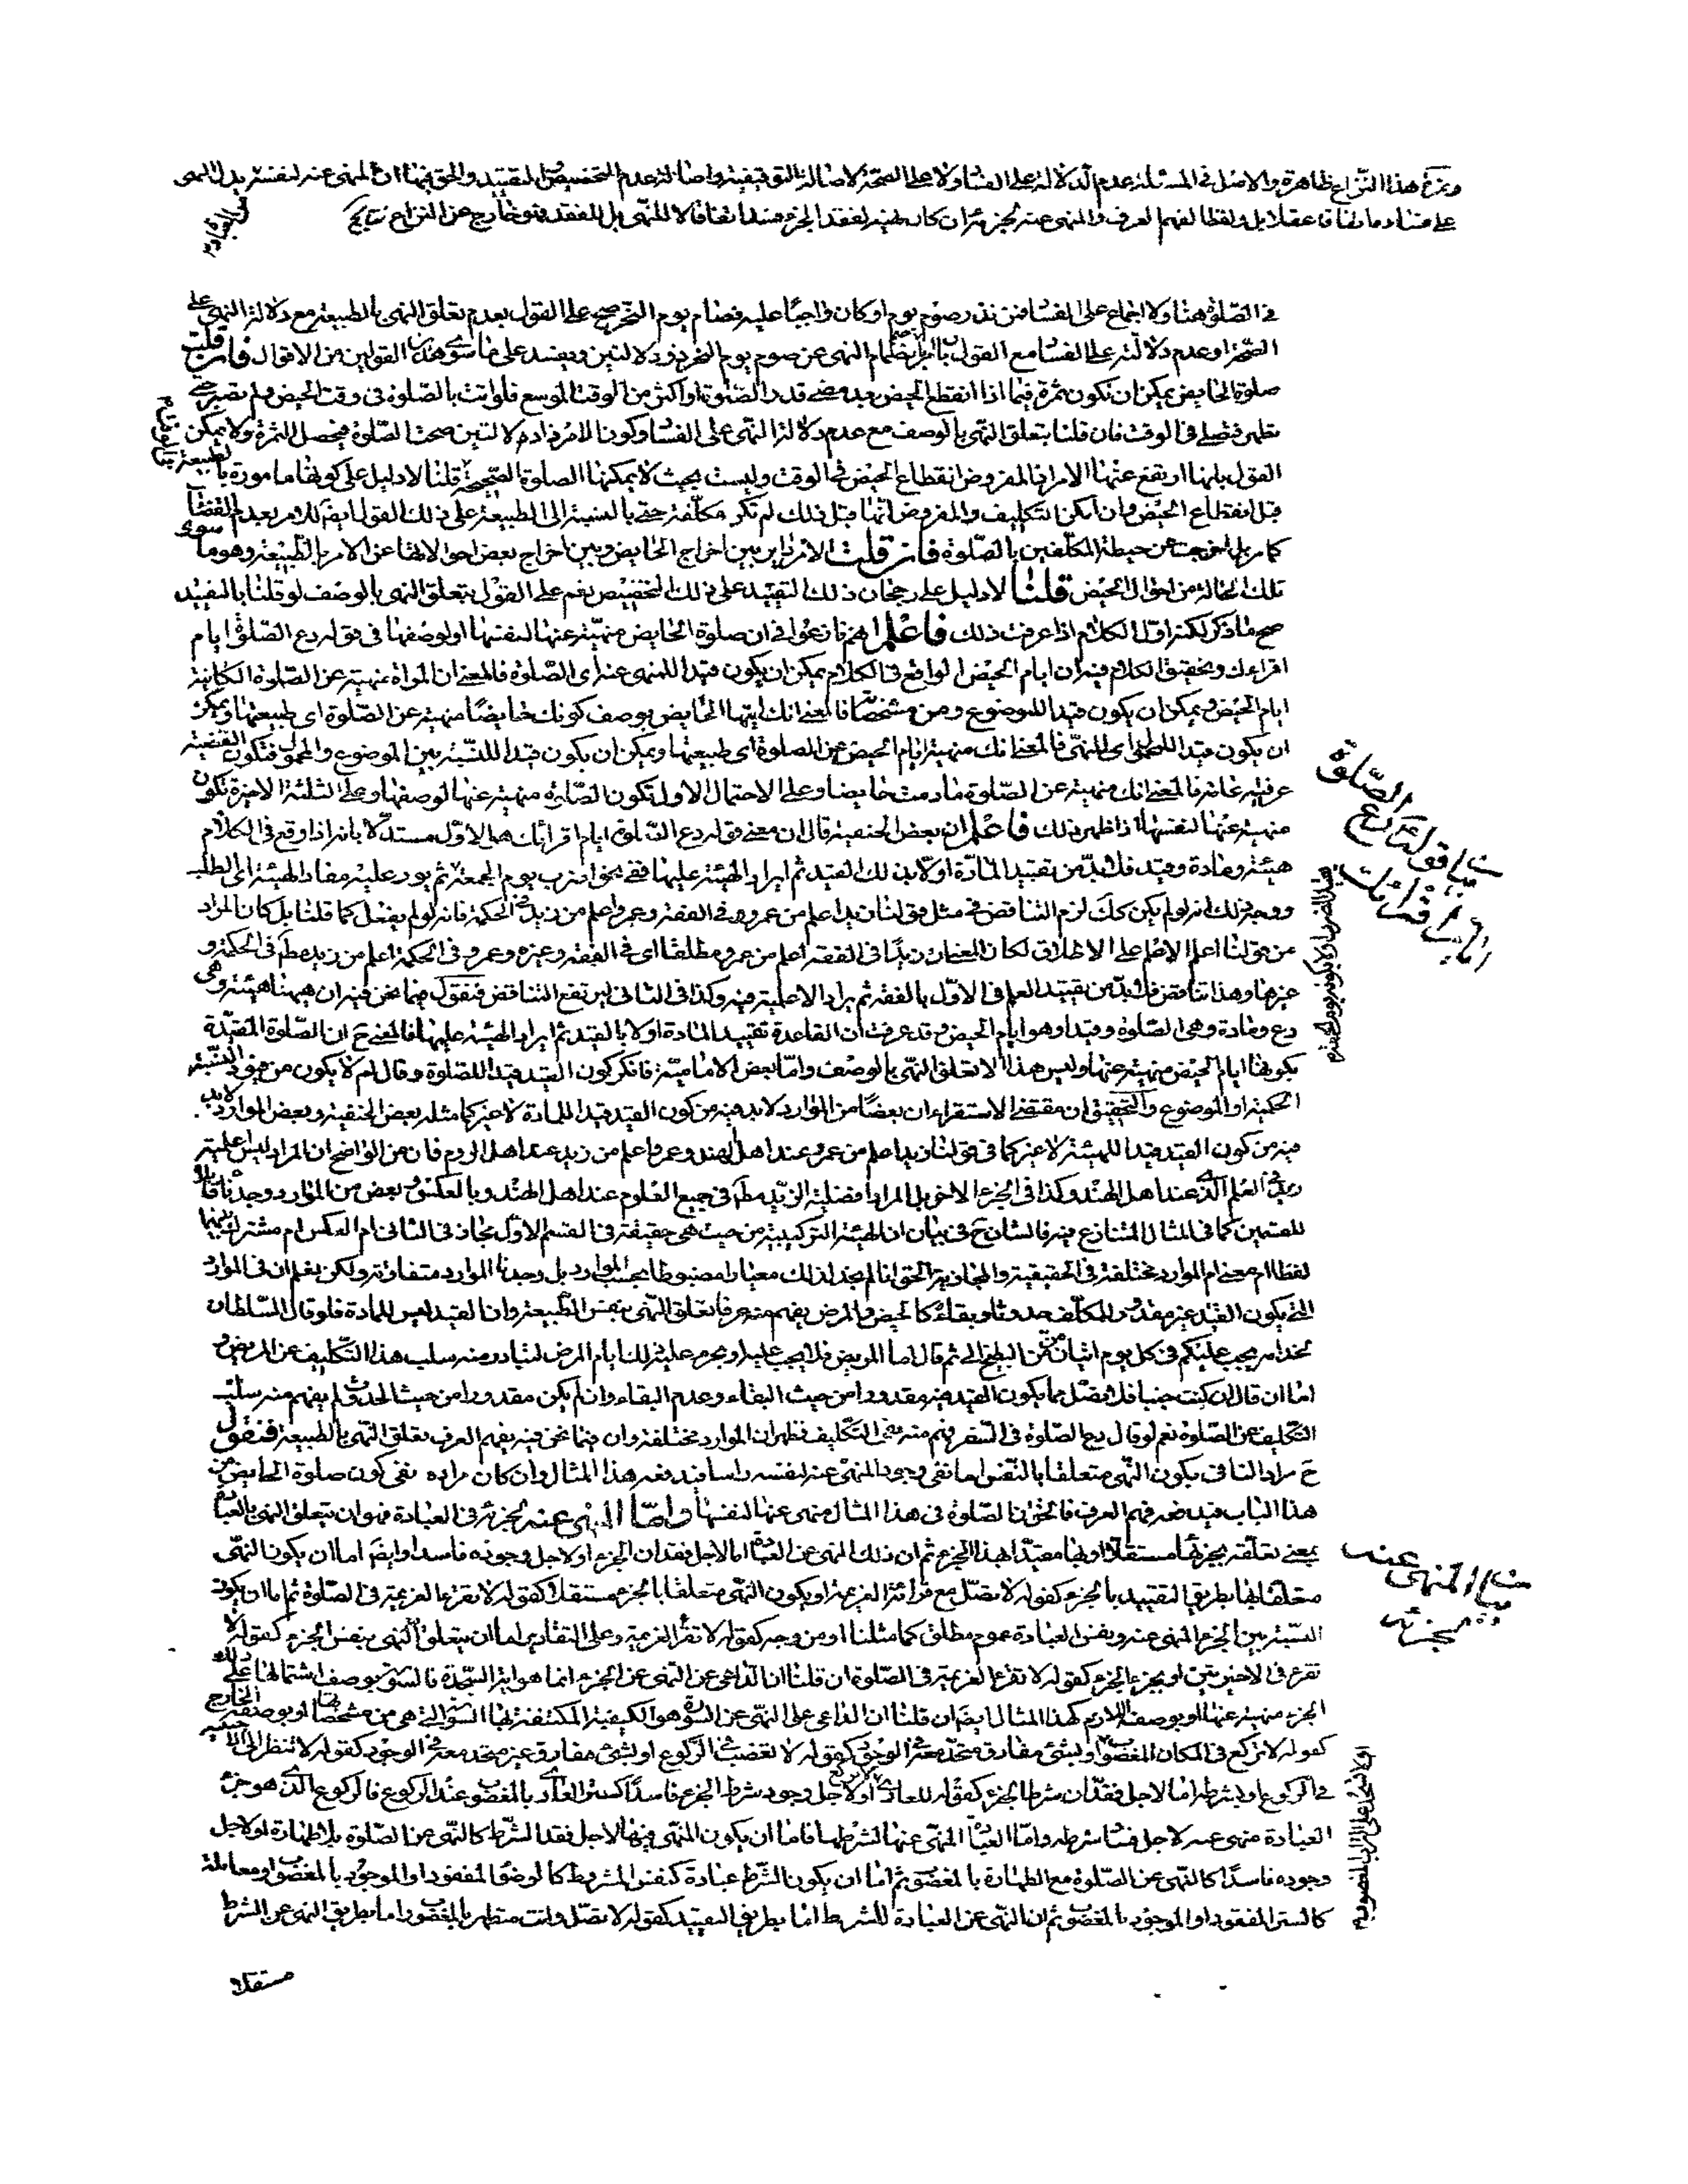 وثمرة هذا النزاع ظاهرة والاصل في المسئلة عدم الدلالة على الفساد ولا على الصحة لاصالة التوقيفية واصالة عدم التخصيص التقييد والحق فيها ان المنهى عنه لنفسه يدل النهى
على فساده مانفاقا عقلا بل ولفظا لفهم العرف والمنهى عنه لجزئه ان كان لفقد الجزء فسد اتفاقا لا للنهى بل للفقد فهو خارج عن النزاع نتايج
في الصلوة هنا ولا اجماع على الفساد فمن نذر صوم يوم او كان واجبا عليه فصام يوم النحر صح على القول بعدم تعلق النهى بالطبيعة مع دلالة النهى على
الصحة او عدم دلالته على الفساد مع القول النهى عن صوم يوم النحر ذو دلالتين ويفسد على ما سوى هذا القولين من الاقوال فان قلت
صلوة الحايض يمكن ان تكون ثمرة فيما اذا انقطع الحيض بعد مضى قدر الصلوة او اكثر من الوقت الموسع فلو اتت بالصلوة في وقت الحيض ولم تصبر حتى
تطهر فتصلى في الوقت فان قلنا بتعلق النهى بالوصف مع عدم دلالة النهى على الفساد وكون الامر ذا دلالتين صحت الصلوة فيحصل الثمرة ولا يمكن
القول بانها ارتفع عنها الامر اذ المفروض انقطاع الحيض في الوقت وليست بحيث لا يمكنها الصلوة الصحيحة قلنا لا دليل على كونها مامورة بالطبيعة
قبل انقطاع الحيض وان امكن التكليف والمفروض انها قبل ذلك لم تكن مكلفة حتى بالنسبة الى الطبيعة على ذلك القول ايض للامر بعدم القضاء
كما مر بل خرجت عن حيطة المكلفين بالصلوة فان قلت الامر داير بين اخراج الحايض وبين اخراج بعض احوالها عن الامر بالطبيعة وهو ما سوى
تلك الحالة من احوال الحيض قلنا لا دليل على رجحان ذلك التقييد على ذلك التخصيص نعم على القول بتعلق النهى بالوصف لو قلنا بالتقييد
صح ما ذكر لكنه اول الكلام اذا عرفت ذلك فاعلم انهم نازعوا في ان صلوة الحايض منهية عنها لنفسها او لوصفها في قوله دع الصلوة ايام
اقراءك وتحقيق الكلام فيه ان ايام الحيض الواقع في الكلام يمكن ان يكون قيدا للمنهى عنه اى الصلوة فالمعنى ان المراة منهية عن الصلوة الكائنة
ايام الحيض ويمكن ان يكون قيدا للموضوع ومن مشخصاته فالمعنى انك ايتها الحايض بوصف كونك حايضا منهية عن الصلوة اى طبيعتها ويمكن
ان يكون قيدا للطلب اى للنهى فالمعنى انك منهية ايام الحيض عن الصلوة اى طبيعتها ويمكن ان يكون قيدا للنسبة بين الموضوع والمحمول فتكون القضية
عرفية عامة فالمعنى انك منهية عن الصلوة ما دمت حايضا وعلى الاحتمال الاول تكون الصلوة منهية عنها لوصفها وعلى الثلثة الاخيرة تكون
منهية عنها لنفسها اذا ظهر ذلك فاعلم ان بعض الحنفية قال ان معنى قوله دع الصلوة ايام اقرائك هو الاول مستدلا بانه اذا وقع في الكلام
هيئة ومادة وقيد فلا بد من تقييد المادة اولا بذلك القيد ثم ايراد الهيئة عليها ففى نحو اضرب يوم الجمعة ثم يورد عليه مفاد الهيئة اى الطلب
ووجه ذلك انه لو لم يكن كك لزم التناقض في مثل قولنا زيد اعلم من عمرو في الفقه وعمرو اعلم من زيد في الحكمة فانه لو لم يفعل كما قلنا بل كان المراد
من قولنا اعلم الاعلم على الاطلاق لكان المعنى ان زيدا في الفقه اعلم من عمرو مطلقا اى في الفقه وغيره وعمرو في الحكمة اعلم من زيد مطم في الحكمة و
غيرها وهذا تناقض فلا بد من تقييد العلم في الاول بالفقه ثم يراد الاعلمية فيه وكذا في الثانى ليرتفع التناقض فنقول فيما نحن فيه ان ههنا هيئة وهى
دع ومادة وهى الصلوة وقيدا وهو ايام الحيض وقد عرفت ان القاعدة تقييد المادة اولا بالقيد ثم ايراد الهيئة عليها فالمعنى ح ان الصلوة المقيدة
بكونها ايام الحيض منهية عنها وليس هذا الا تعلق النهى بالوصف واما بعض الامامية فانكر كون القيد قيدا للصلوة وقال لم لا يكون من قيود النسبة
الحكمية او الموضوع والتحقيق ان مقتضى الاستقراء ان بعضا من الموارد لابد فيه من كون القيد قيدا للمادة لا غير كما مثله بعض الحنفية وبعض الموارد لابد
فيه من كون القيد قيدا للهيئة لا غير كما في قولنا زيد اعلم من عمرو عند اهل الهند وعمرو اعلم من زيد عند اهل الروم فان من الواضح ان المراد ليس اعلمية
زيد في العلم الذى عند اهل الهند وكذا في الجزء الاخر بل المراد افضلية الزيد مطم في جميع العلوم عند اهل الهند وبالعكس وبعض من الموارد وجدناه قابلا
للقسمين كما في المثال المتنازع فيه فالشان ح في بيان ان الهيئة التركيبية من حيث هى حقيقة في القسم الاول مجاز في الثانى ام العكس ام مشترك بينهما
لفظا ام معنى ام الموارد مختلفة في الحقيقية والمجازية الحق انا لم نجد لذلك معيارا مضبوطا بحسب الموارد بل وجدنا الموارد متفاوتة ولكن نعلم ان في الموارد
التى يكون القيد غير مقدور للمكلف حدوثا وبقاء كالحيض والمرض يفهم منه عرفا تعلق النهى بنفس الطبيعة وان القيد ليس للمادة فلو قال السلطان
لخدامه يجب عليكم في كل يوم اتيان من البطيخ الى ثم قال اما المريض فلا يجب عليه او يحرم عليه ذلك ايام المرض لتبادر منه سلب هذا التكليف عن المريض و
اما ان قال ان كنت جنبا فلا تصل مما يكون القيد فيه مقدورا من حيث البقاء وعدم البقاء وان لم يكن مقدورا من حيث الحدوث لم يفهم منه سلب
التكليف عن الصلوة نعم لو قال دع الصلوة في السفر فهم منه نفى التكليف فظهر ان الموارد مختلفة وان فيما نحن فيه يفهم العرف تعلق النهى بالطبيعة فنقول
ح مراد النافى بكون النهى متعلقا بالنفس اما نفى وجود المنهى عنه لنفسه راسا فيدفعه هذا المثال وان كان مراده نفى كون صلوة الحايض من
هذا الباب فيدفعه فهم العرف فالحق ان الصلوة في هذا المثال منهى عنها لنفسها واما المنهى عنه لجزئه في العبادة فهو ان يتعلق النهى بالعبادة
بمعنى تعلقه بجزئها مستقلا او بها مقيدا بهذا الجزء ثم ان ذلك النهى عن العبادة اما لاجل فقدان الجزء او لاجل وجوده فاسدا وايضا اما ان يكون النهى
متعلقا بها بطريق التقييد بالجزء كقوله لا تصل مع قرائة العزيمة او يكون النهى متعلقا بالجزء مستقلا كقوله لا تقرء العزيمة في الصلوة ثم اما ان يكون
النسبة بين الجزء المنهى عنه ونفس العبادة عموم مطلق كما مثلنا او من وجه كقوله لا تقرأ العزيمة وعلى التقادير اما ان يتعلق النهى بنفس الجزء كقوله لا
تقرء في الاخيرتين او بجزء الجزء كقوله لا تقرء العزيمة في الصلوة ان قلنا ان الداعى عن النهى عن الجزء انما هو اية السجدة فالسورة بوصف اشتمالها على ذلك
الجزء منهية عنها او بوصفه اللازم كهذا المثال ايض ان قلنا ان الداعى على النهى عن السورة هو الكيفية المكتنفة بهذا السورة التى هى من مشخصاتها او بوصفه الخارج
كقوله لا تركع في المكان المغصوب او بشئ مفارق متحد معه في الوجود كقوله لا تغضب في الركوع او بشئ مفارق غير متحد معه في الوجود كقوله لا تنظر الى الاجنبية
في الركوع او بشرطه اما لاجل فقدان شرط الجزء كقوله للعارى لا تركع او لاجل وجود شرط الجزء فاسدا كستر العارى بالمغصوب عند الركوع فالركوع الذى هو جزء
العبادة منهى عنه لاجل فساد شرطه واما العبادة المنهى عنها لشرطها فاما ان يكون النهى فيها لاجل فقد الشرط كالنهى عن الصلوة بلا طهارة او لاجل
وجوده فاسدا كالنهى عن الصلوة مع الطهارة بالمغصوب ثم اما ان يكون الشرط عبادة كنفس المشروط كالوضوء المفقود او الموجود بالمغصوب او معاملة
كالستر المفقود او الموجود بالمغصوب ثم ان النهى عن العبادة للشرط اما بطريق التقييد كقوله لا تصل وانت متطهر بالمغصوب او اما بطريق النهى عن الشرط
مستقلا
في قوله دع الصلوة
ايام اقرائك
في المنهى عنه
لجزئه